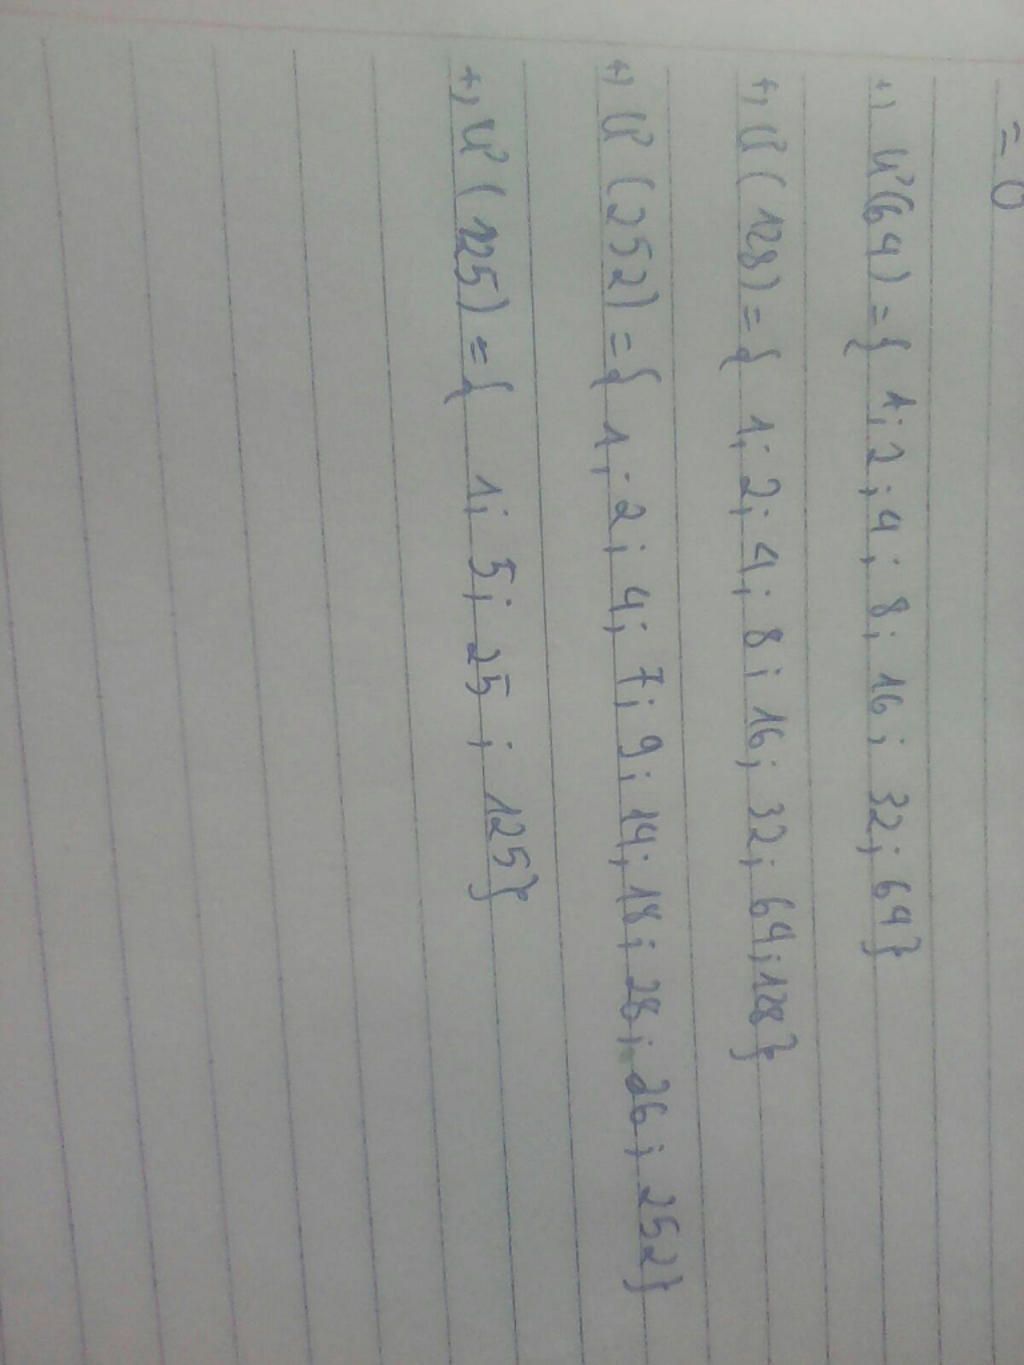 = 0
+) Ư(64) = { 1; 2; 4; 8; 16; 32; 64}
+, Ư(128) = { 1; 2; 4; 8; 16; 32; 64; 128}
+) Ư(252) = { 1; 2; 4; 7; 9; 14; 18; 28; 26; 252}
+, Ư(125) = { 1; 5; 25; 125}